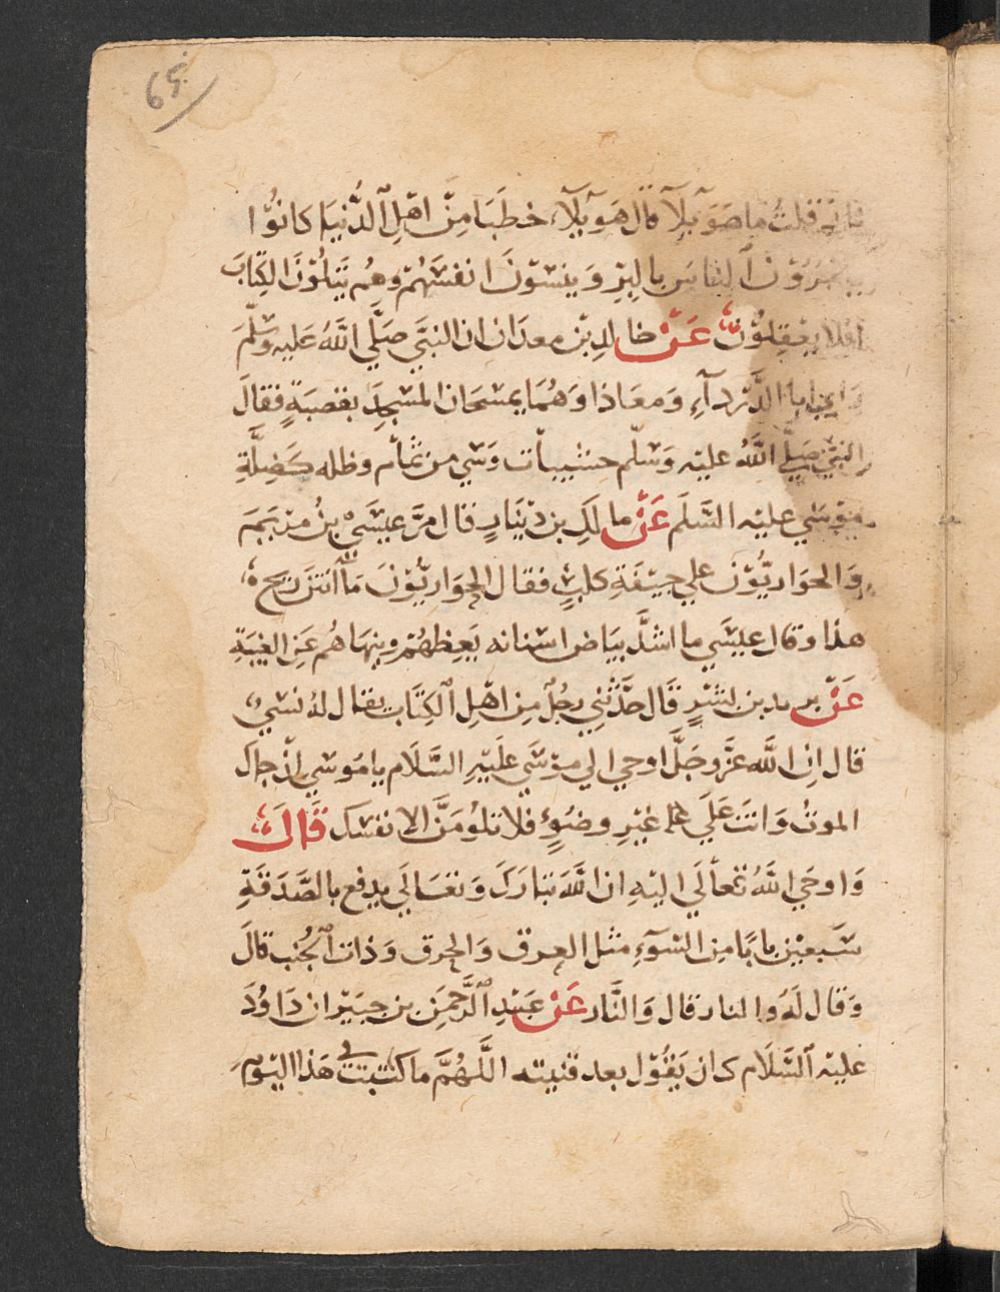 65
قلتُ ما هَوٓلَآ قال هَوٓلَآ، خطَبَا مِنْ اهْلِ الدُّنيَا كانُوُا
النَاسَ بالبِرِ وَينسَوْنَ انفسَهُمْ وهُم يَتلُوْنَ الكِتَابَ
افلا يعْقِلوُنَ عَنْ خالدِ بن معدَان ان النبَّي صَلَّي اللَّهُ عَليه وسَلّمَ
الدَّردآءِ وَمعَاذا وَهُمَا يمسَحَان المسْجِدَ بقصبَةٍ فقالَ
النبَّي صَلَّي اللَّهُ عليْه وَسَلّم خشيبات وَشي من ثمُام وظله كَضِلَّةِ
موْسَي عليْه السَّلَم عَنْ مالكِ بن ديْنَارٍ قال مرَّ عيسَيْ بنُ مرْيَمَ
وَالحوَاريُّوْن علي جيْفَةِ كلبٍ فقال الحوَاريُّوْنَ مَا انتنَ ريح
هذا وقال عليسَي ما اشدَّ بيَاض اسْنانه يَعِظهُمْ وينهَاهُم عَنِ الغيبَةِ
عَنْ بن بشرٍ قَال حَدَّثني رجُل مِن اهْلِ الكِتَاب يقال لهُ
قال اِن اللَّه عزَّ وجَلَّ اوحي الي موْسَي عَليْهِ السَّلَام يا مُوسي اِنْ جاك
الموتُ وَانتَ عَلَي غيْرِ وضُوءٍ فلا تلوُمَنَّ الا نفسَك قَالَ
وَاوحَي اللَّهُ تعاَلَي اليْهِ ان اللَّهَ تبَارَكَ وَتعَالَي يدفع بالصَّدَقَةِ
سَبعيْن بابًا مِن السّوٓءِ مثل العرق وَالحرق وَذات الجُنب قالَ
وَقال لَهُ والنار قال وَالنَّار عَنْ عَبْدِ الرَّحمَنِ بن جبَيْر ان دَاوُدَ
عليْه السَّلَام كان يَقُوْل بعد اللَّهُمَّ ما كتبتَ في هَذا اليَوْم